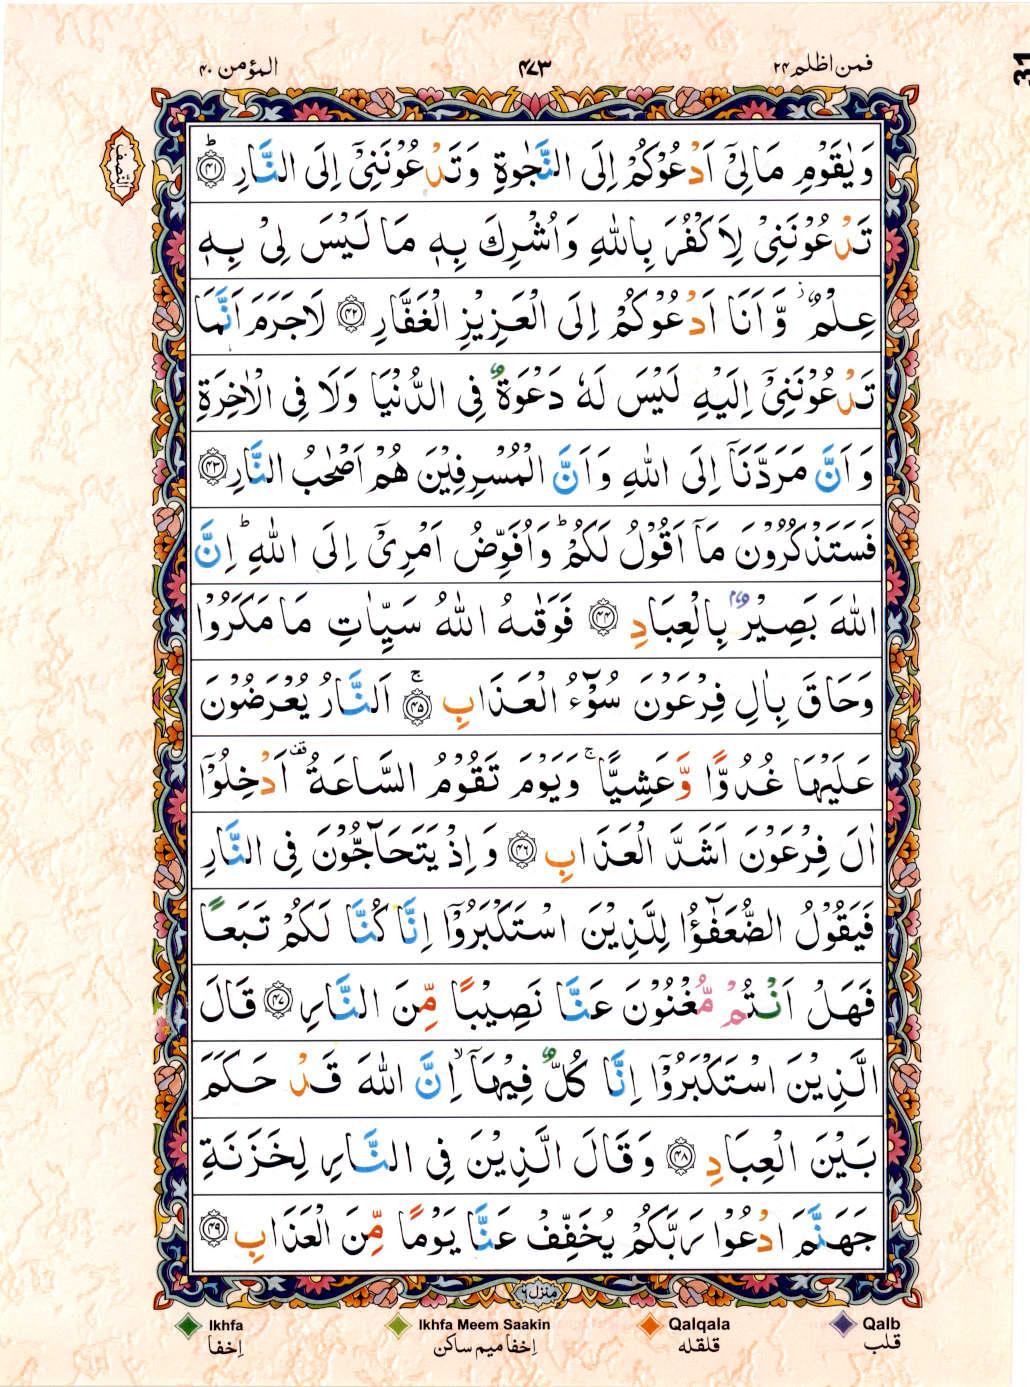 فمن اظلم ۲۴
۴۷۳
المؤمن ۴۰
31
النصف
وَیٰقَوْمِ مَا لِیْۤ اَدْعُوْكُمْ اِلَى النَّجٰوةِ وَتَدْعُوْنَنِیْۤ اِلَى النَّارِ ؕ﴿۴۱﴾
تَدْعُوْنَنِیْ لِاَكْفُرَ بِاللّٰهِ وَاُشْرِكَ بِهٖ مَا لَیْسَ لِیْ بِهٖ
عِلْمٌ ؗ وَّاَنَا اَدْعُوْكُمْ اِلَى الْعَزِیْزِ الْغَفَّارِ ﴿۴۲﴾ لَاجَرَمَ اَنَّمَا
تَدْعُوْنَنِیْۤ اِلَیْهِ لَیْسَ لَهٗ دَعْوَةٌ فِی الدُّنْیَا وَلَا فِی الْاٰخِرَةِ
وَاَنَّ مَرَدَّنَاۤ اِلَى اللّٰهِ وَاَنَّ الْمُسْرِفِیْنَ هُمْ اَصْحٰبُ النَّارِ ﴿۴۳﴾
فَسَتَذْكُرُوْنَ مَاۤ اَقُوْلُ لَكُمْ ؕ وَاُفَوِّضُ اَمْرِیْۤ اِلَى اللّٰهِ ؕ اِنَّ
اللّٰهَ بَصِیْرٌۢ بِالْعِبَادِ ﴿۴۴﴾ فَوَقٰىهُ اللّٰهُ سَیِّاٰتِ مَا مَكَرُوْا
وَحَاقَ بِاٰلِ فِرْعَوْنَ سُوْٓءُ الْعَذَابِ ۚ﴿۴۵﴾ اَلنَّارُ یُعْرَضُوْنَ
عَلَیْهَا غُدُوًّا وَّعَشِیًّا ۚ وَیَوْمَ تَقُوْمُ السَّاعَةُ ۫ اَدْخِلُوْۤا
اٰلَ فِرْعَوْنَ اَشَدَّ الْعَذَابِ ﴿۴۶﴾ وَاِذْ یَتَحَآجُّوْنَ فِی النَّارِ
فَیَقُوْلُ الضُّعَفٰٓؤُا لِلَّذِیْنَ اسْتَكْبَرُوْۤا اِنَّا كُنَّا لَكُمْ تَبَعًا
فَهَلْ اَنْتُمْ مُّغْنُوْنَ عَنَّا نَصِیْبًا مِّنَ النَّارِ ﴿۴۷﴾ قَالَ
الَّذِیْنَ اسْتَكْبَرُوْۤا اِنَّا كُلٌّ فِیْهَاۤ ۙ اِنَّ اللّٰهَ قَدْ حَكَمَ
بَیْنَ الْعِبَادِ ﴿۴۸﴾ وَقَالَ الَّذِیْنَ فِی النَّارِ لِخَزَنَةِ
جَهَنَّمَ ادْعُوْا رَبَّكُمْ یُخَفِّفْ عَنَّا یَوْمًا مِّنَ الْعَذَابِ ﴿۴۹﴾
منزل ۶
Ikhfa Ikhfa Meem Saakin Qalqala Qalb
اِخفا اِخفا میم ساکن قلقله قلب